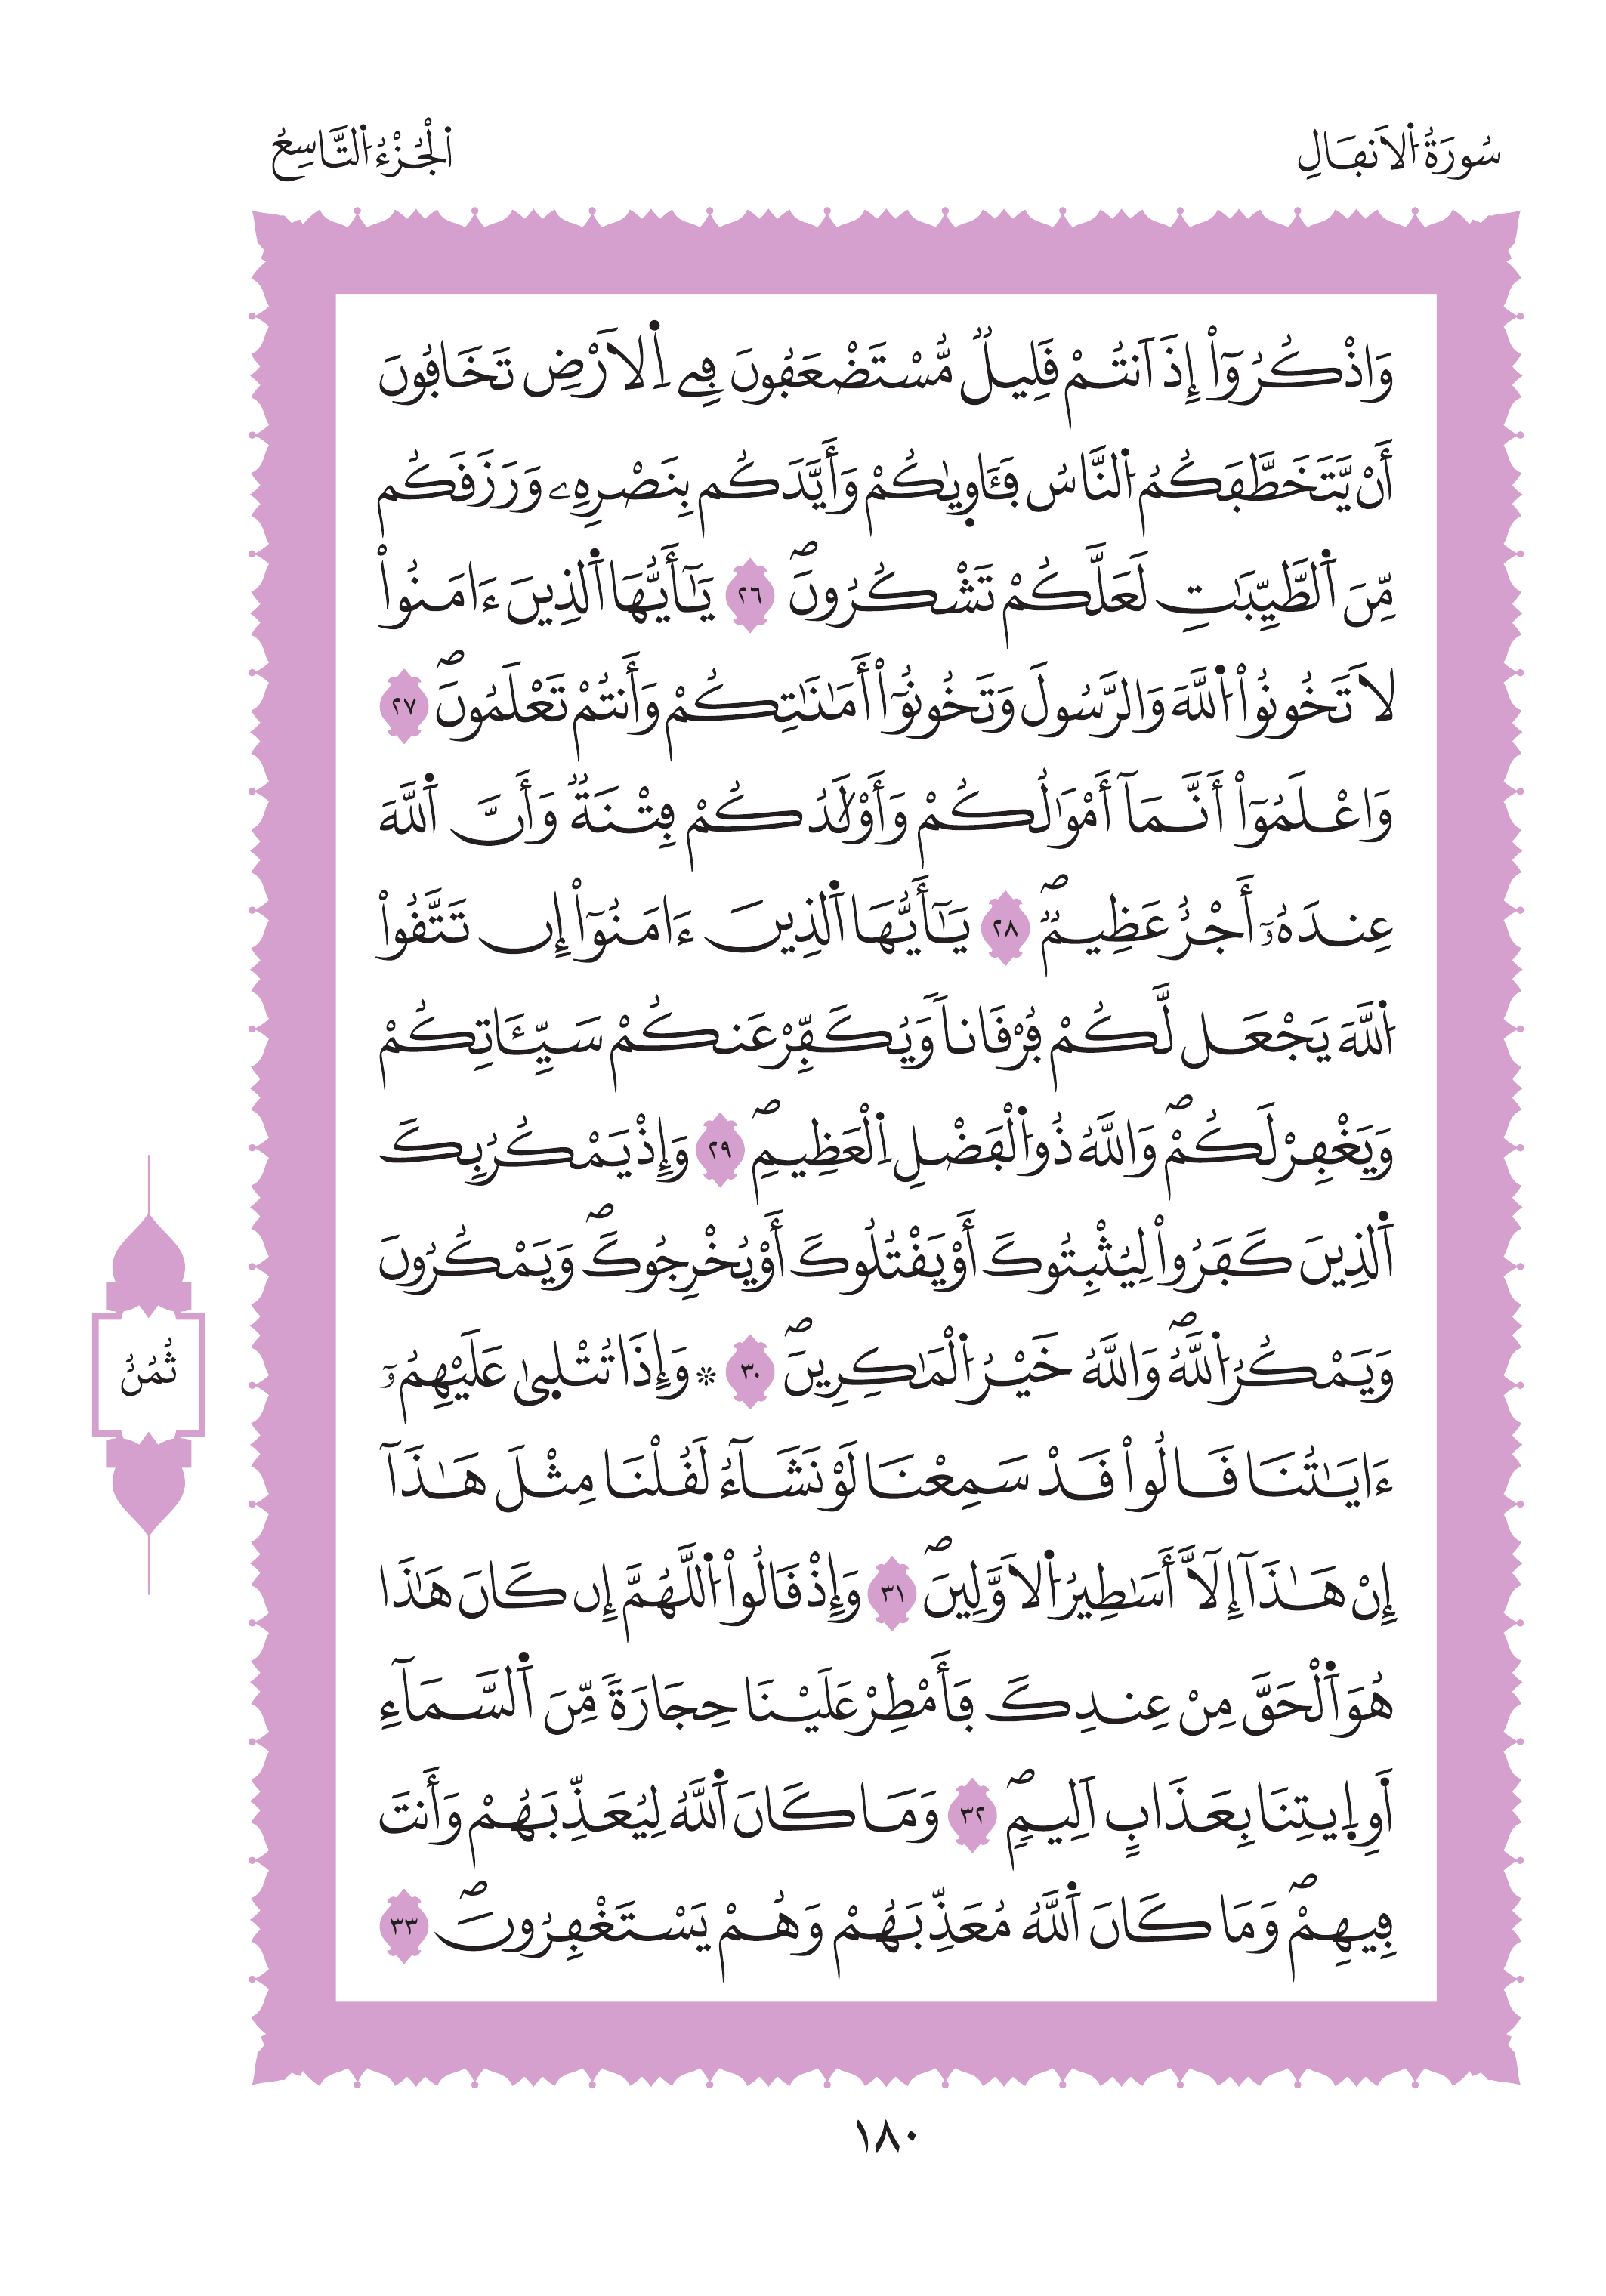 سُورَةُ اُ۬لَانفَالِ
اُ۬لْجُزْءُ اُ۬لتَّاسِعُ
وَاذْكُرُوٓاْ إِذَ اَنتُمْ قَلِيلٞ مُّسْتَضْعَفُونَ فِے اِ۬لَارْضِ تَخَافُونَ
أَنْ يَّتَخَطَّفَكُمُ اُ۬لنَّاسُ فَـَٔاو۪يٰكُمْ وَأَيَّدَكُم بِنَصْرِهِۦ وَرَزَقَكُم
مِّنَ اَ۬لطَّيِّبَٰتِ لَعَلَّكُمْ تَشْكُرُونَۖ ٢٦ يَٰٓأَيُّهَا اَ۬لذِينَ ءَامَنُواْ
لَا تَخُونُواْ اُ۬للَّهَ وَالرَّسُولَ وَتَخُونُوٓاْ أَمَٰنَٰتِكُمْ وَأَنتُمْ تَعْلَمُونَۖ ٢٧
وَاعْلَمُوٓاْ أَنَّمَآ أَمْوَٰلُكُمْ وَأَوْلَٰدُكُمْ فِتْنَةٞ وَأَنَّ اَ۬للَّهَ
عِندَهُۥٓ أَجْرٌ عَظِيمٞۖ ٢٨ يَٰٓأَيُّهَا اَ۬لذِينَ ءَامَنُوٓاْ إِن تَتَّقُواْ
اُ۬للَّهَ يَجْعَل لَّكُمْ فُرْقَاناٗ وَيُكَفِّرْ عَنكُمْ سَيِّـَٔاتِكُمْ
وَيَغْفِرْ لَكُمْۖ وَاللَّهُ ذُو اُ۬لْفَضْلِ اِ۬لْعَظِيمِۖ ٢٩ وَإِذْ يَمْكُرُ بِكَ
اَ۬لذِينَ كَفَرُواْ لِيُثْبِتُوكَ أَوْ يَقْتُلُوكَ أَوْ يُخْرِجُوكَۖ وَيَمْكُرُونَ
وَيَمْكُرُ اُ۬للَّهُۖ وَاللَّهُ خَيْرُ اُ۬لْمَٰكِرِينَۖ ٣٠ ۞ وَإِذَا تُتْل۪يٰ عَلَيْهِمُۥٓ
ءَايَٰتُنَا قَالُواْ قَدْ سَمِعْنَا لَوْ نَشَآءُ لَقُلْنَا مِثْلَ هَٰذَآ
إِنْ هَٰذَآ إِلَّآ أَسَٰطِيرُ اُ۬لَاوَّلِينَۖ ٣١ وَإِذْ قَالُواْ اُ۬للَّهُمَّ إِن كَانَ هَٰذَا
هُوَ اَ۬لْحَقَّ مِنْ عِندِكَ فَأَمْطِرْ عَلَيْنَا حِجَارَةٗ مِّنَ اَ۬لسَّمَآءِ
أَوِ اِ۪يتِنَا بِعَذَابٍ اَلِيمٖۖ ٣٢ وَمَا كَانَ اَ۬للَّهُ لِيُعَذِّبَهُمْ وَأَنتَ
فِيهِمْۖ وَمَا كَانَ اَ۬للَّهُ مُعَذِّبَهُمْ وَهُمْ يَسْتَغْفِرُونَۖ ٣٣
ثُمُنُ
١٨٠